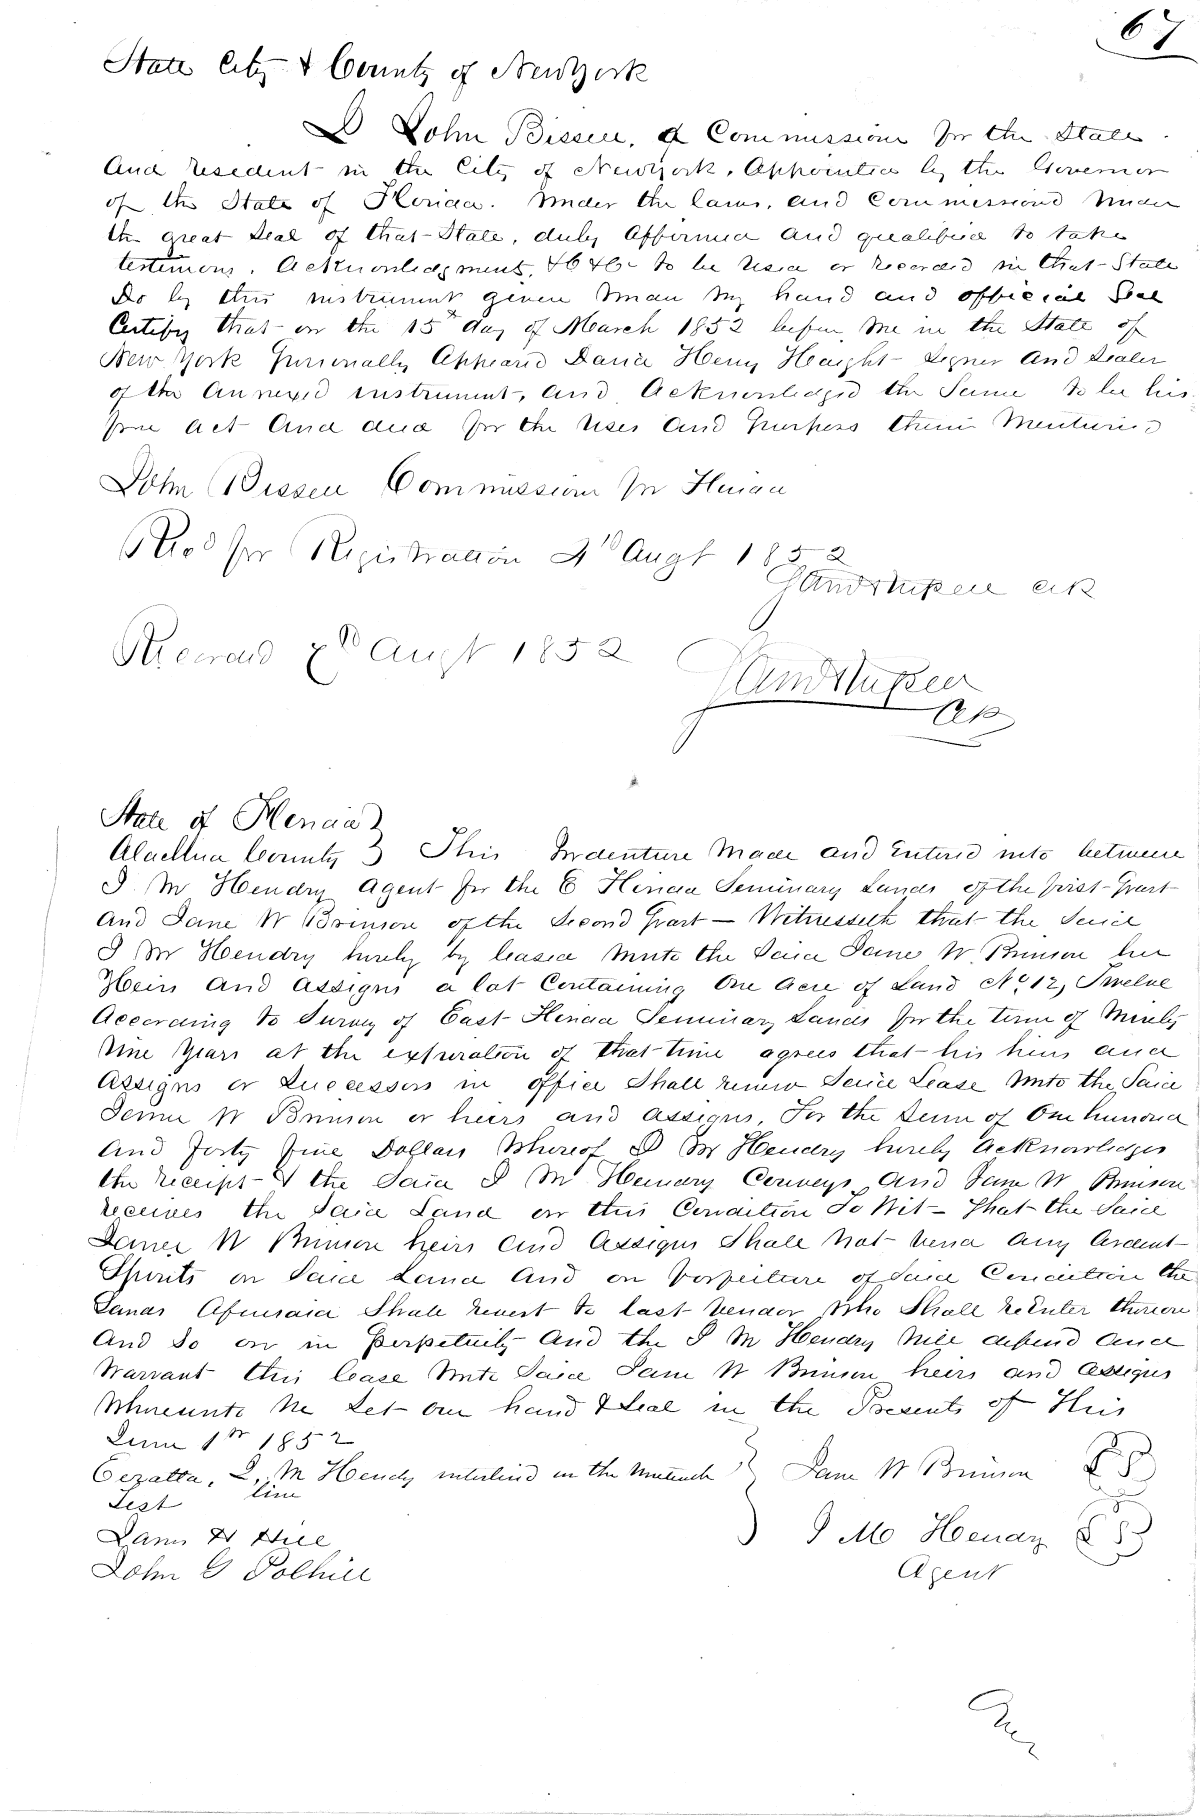 67
State City & County of New York
I John Bissell, a Commissioner for the State
and resident in the City of New York, Appointed by the Governor
of the State of Florida. Under the laws, and Commissiond Under
the great Seal of that State, duly Affirmed and qualified to take
testimony, Acknowledgment, &c &c to be Used or recorded in that State
Do by this instrument given Under my hand and official Seal
Certify that on the 15th day of March 1852 before me in the State of
New York Personally Appeard David Henry Haight Signer and Sealer
of the Annexed instrument, and Acknowledged the Same to be his
free act and deed for the Uses and Purposes therein Mentioned
John Bissell Commissioner for Florida
Recd for Registration Augt 1852
Clk
Recorded Augt 1852
Clk
State of Florida }
Alachua County } This Indenture Made and Entered into between
I M Hendry Agent for the E Florida Seminary Lands of the first Part
and Jane W Brinson of the Second Part — Witnesseth that the Said
I M Hendry hereby leased unto the Said Jane W Brinson her
Heirs and assigns a lot Containing One Acre of Land No 12, Twelve
According to Survey of East Florida Seminary Lands for the term of Ninety
Nine Years at the expiration of that time agrees that his heirs and
Assigns or Successors in office Shall renew Said Lease Unto the Said
Jane W Brinson or heirs and assigns, For the Sum of One hundred
And Forty five Dollars Whereof I M Hendry hereby Acknowledges
the receipt & the Said I M Hendry Conveys and Jane W Brinson
receives the Said Land on this Condition To Wit — That the Said
Jane W Brinson heirs and Assigns Shall Not Vend Any Ardent
Spirits on Said Land And on Forfeiture of Said Condition the
Lands Aforesaid Shall revert to last Vendor Who Shall reEnter thereon
And So on in Perpetuity And the I M Hendry Will defend and
Warrant this lease Unto Said Jane W Brinson heirs and assigns
Whereunto We Set our hand & Seal in the Presents of This
June 1st 1852
I. M Hendry interlind in the Nineteenth } Jane W Brinson LS
line
Test
James H Hill } I M Hendry LS
John G Polhill Agent